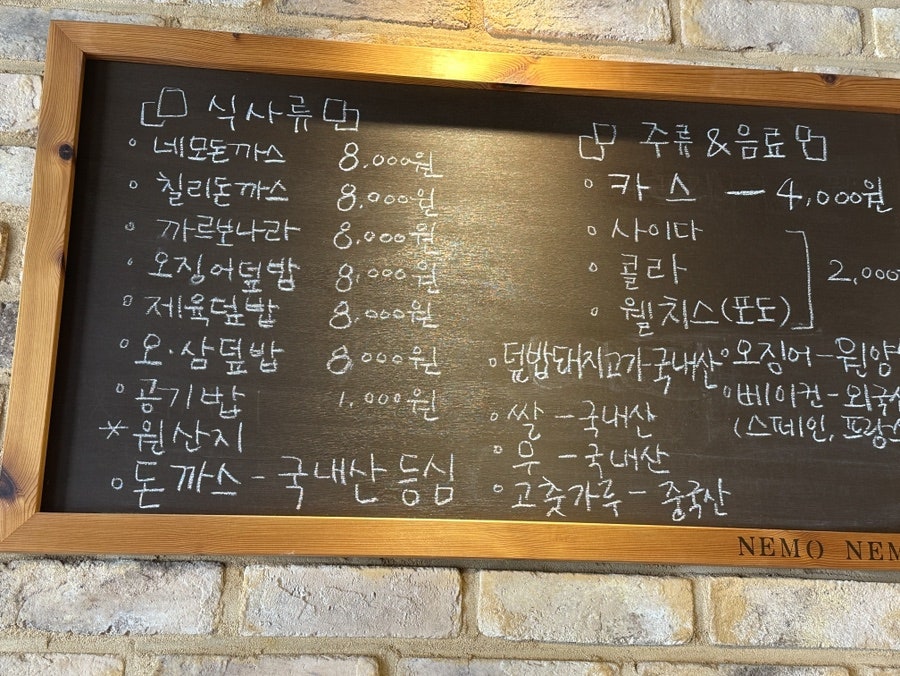 식사류
네모돈까스 8,000원
칠리돈까스 8,000원
까르보나라 8,000원
오징어덮밥 8,000원
제육덮밥 8,000원
오·삼덮밥 8,000원
공기밥 1,000원
*원산지
돈까스 - 국내산 등심
주류&음료
카스 — 4,000원
사이다
콜라
웰치스(포도)
2,000
덮밥돼지고기국내산
쌀 - 국내산
무 - 국내산
고춧가루 - 중국산
오징어 - 원양
베이컨 - 외국
(스페인, 프랑스
NEMO NEM